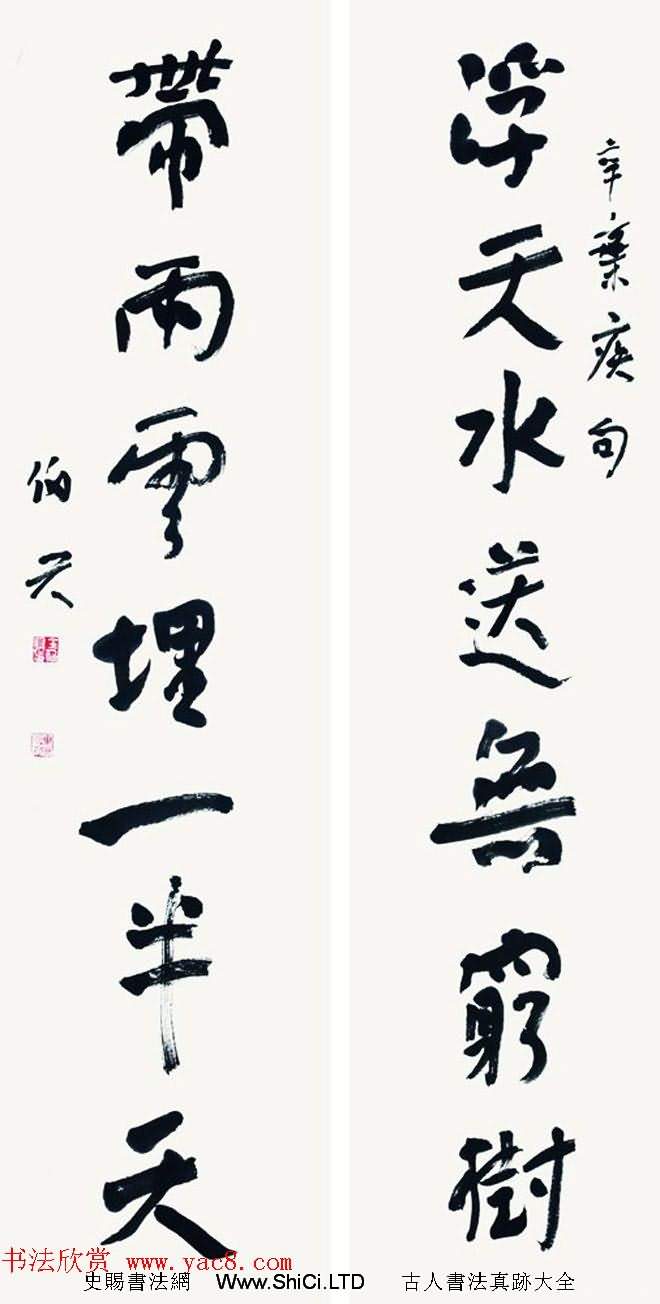 辛棄疾句
浮天水送無窮樹
帶雨雲埋一半天
书法欣赏 www.yac8.com
史賜書法網 Www.ShiCi.LTD 古人書法真跡大全